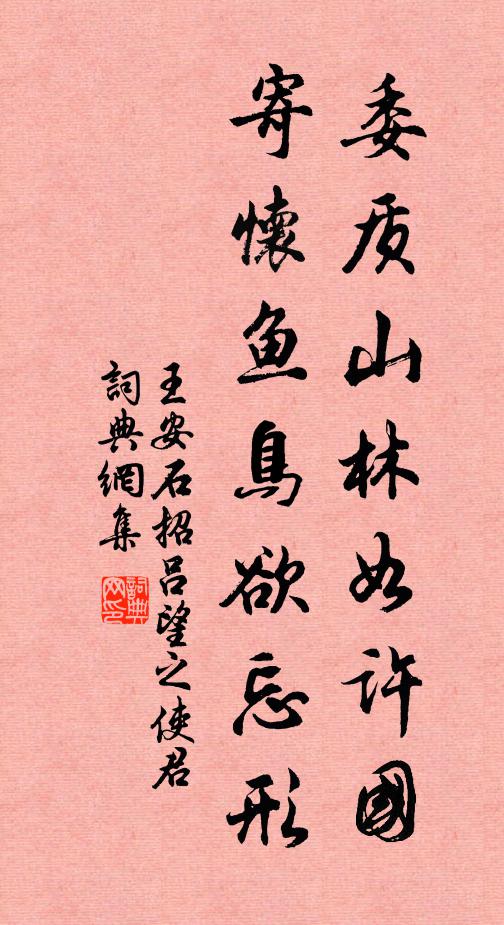 委质山林如许國
寄懷鱼鳥欲忘形
王安石招吕望之使君
詞典網集
詞典網印